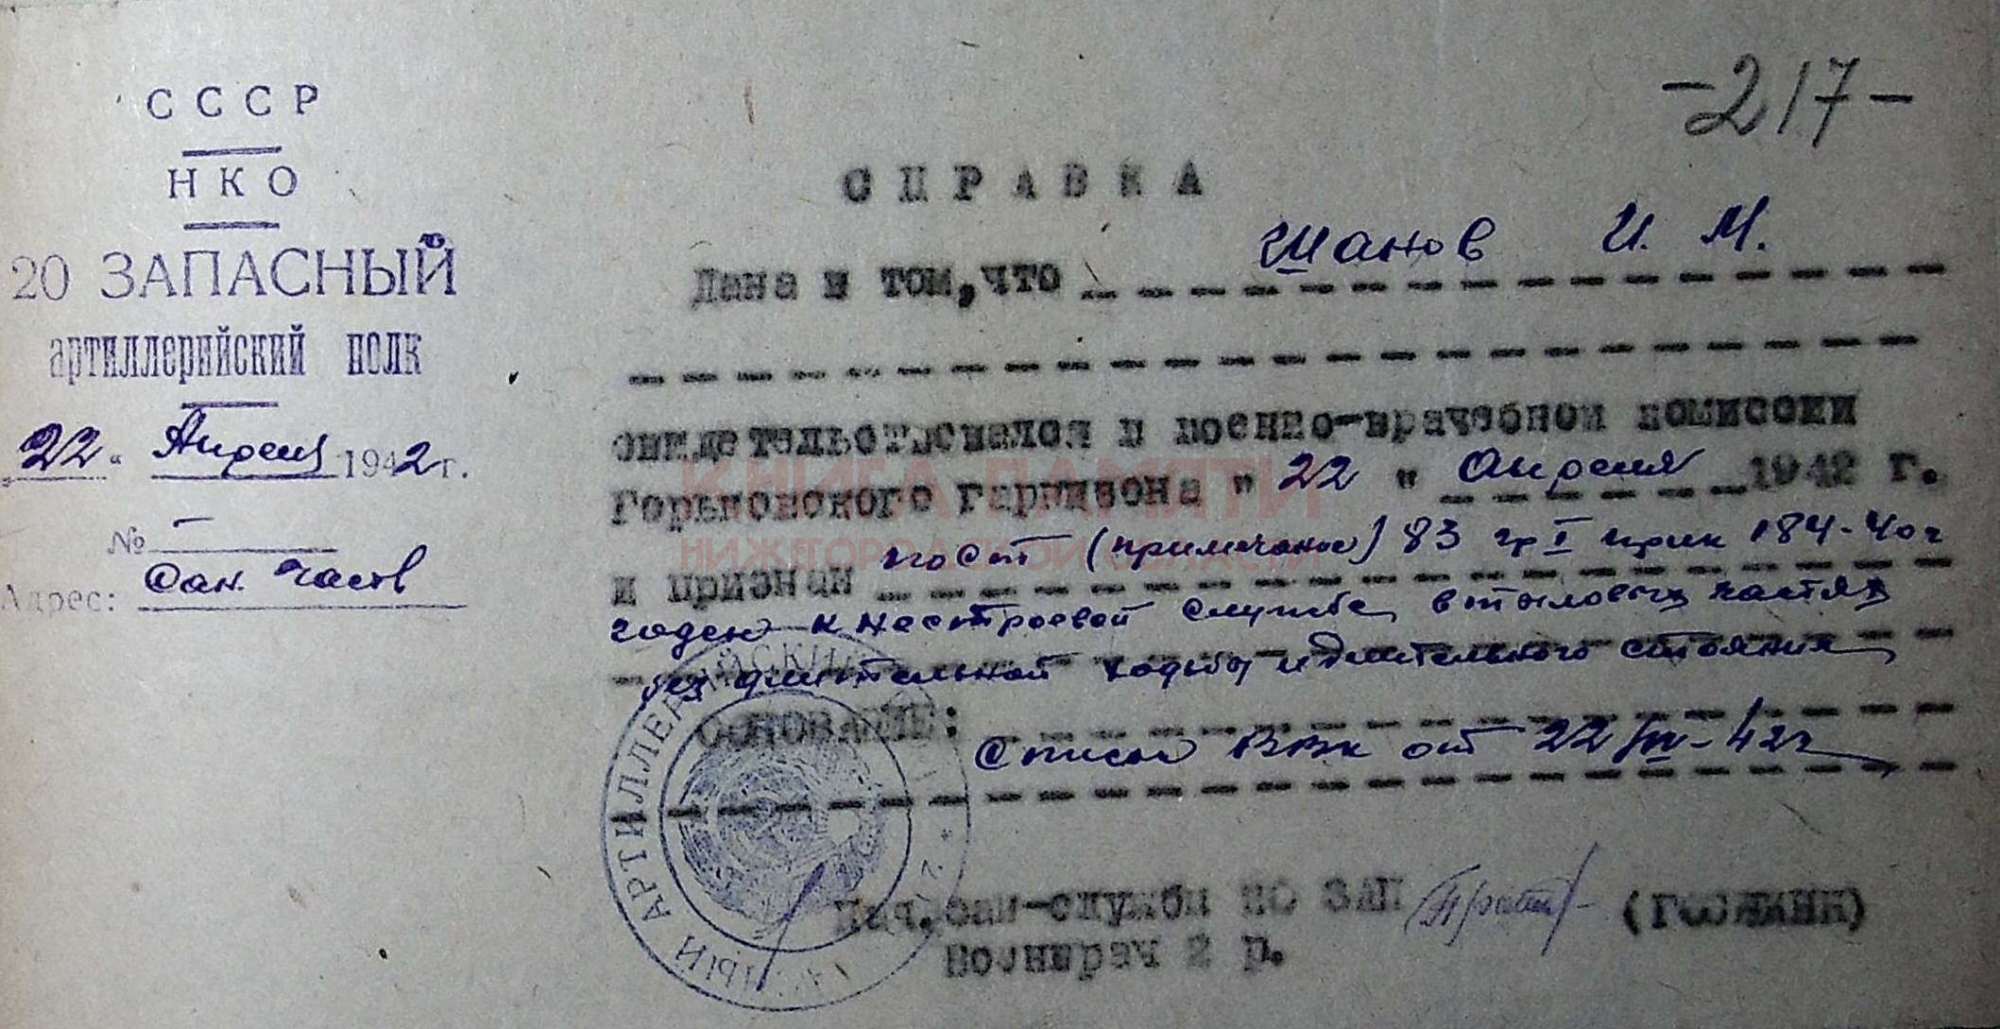 -217-
СССР
НКО
20 ЗАПАСНЫЙ
артиллерийский полк
„22" Апреля 1942 г.
№ —
Адрес: Сан. часть
СПРАВКА
Дана в том, что Шанов И. М.
свидетельствовался в военно-врачебной комиссии
Горьковского гарнизона "22" апреля 1942 г.
и признан по ст (примечание) 83 гр I прик 184-40г
годен к нестроевой службе в тыловых частях
без длительной ходьбы и длительного стояния
ОСНОВАНИЕ:
Список ВВК от 22/IV-42г
Нач. сан-службы 20 ЗАП
Военврач 2 р.
КНИГА ПАМЯТИ
НИЖЕГОРОДСКОЙ ОБЛАСТИ
АРТИЛЛЕРИЙСКИЙ